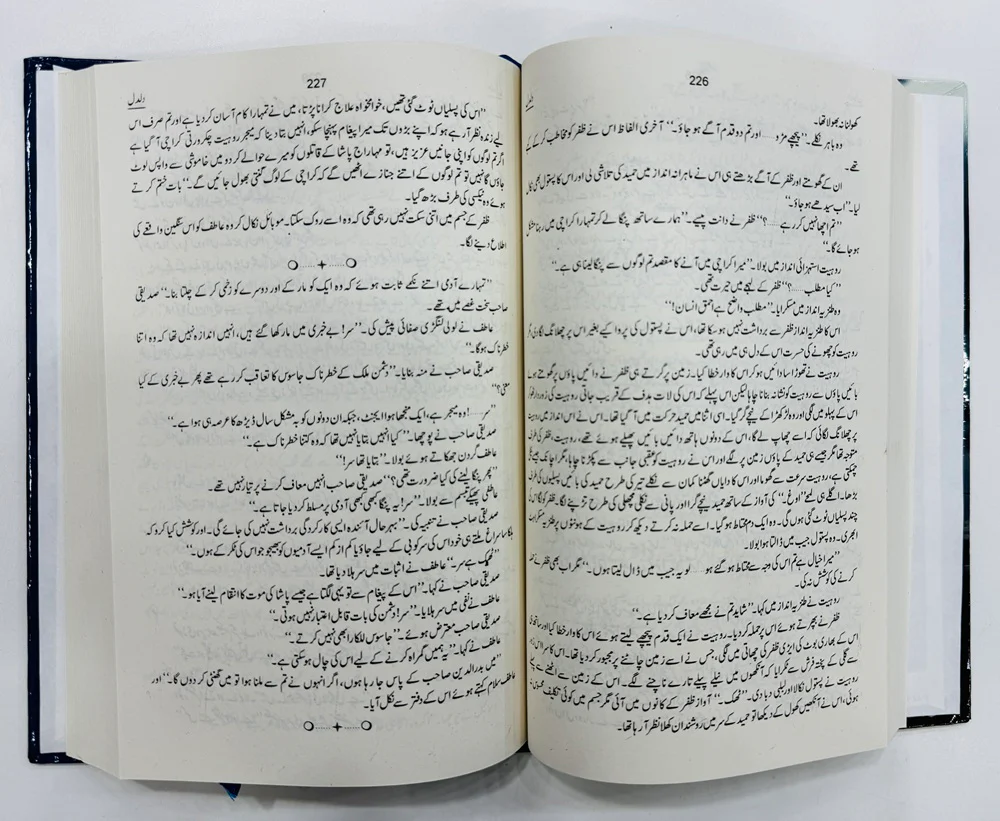 226
کھولنا نہ بھولا تھا۔
وہ باہر نکلے۔ ”پیچھے مڑو ...... اور تم دو قدم آگے ہو جاؤ۔“ آخری الفاظ اس نے ظفر کو مخاطب کر کے کہے
تھے۔
ان کے گھومتے اور ظفر کے آگے بڑھتے ہی اس نے ماہرانہ انداز میں حمید کی تلاشی لی اور اس کا پستول بھی نکال
لیا۔ ”اب سیدھے ہو جاؤ۔“
”تم اچھا نہیں کر رہے ......؟“ ظفر نے دانت پیسے۔ ”ہمارے ساتھ پنگا لے کر تمہارا کراچی میں رہنا مشکل
ہو جائے گا۔“
روہیت استہزائی انداز میں بولا۔ ”میرا کراچی میں آنے کا مقصد تم لوگوں سے پنگا لینا ہی ہے۔“
”کیا مطلب ......؟“ ظفر کے لہجے میں حیرت تھی۔
وہ طنزیہ انداز میں مسکرایا۔ ”مطلب واضح ہے احمق انسان!“
اس کا طنزیہ انداز ظفر سے برداشت نہیں ہو سکا تھا، اس نے پستول کی پروا کیے بغیر اس پر چھلانگ لگا دی مگر
روہیت کو چھونے کی حسرت اس کے دل ہی میں رہی تھی۔
روہیت نے تھوڑا سا دائیں ہو کر اس کا وار خطا کیا۔ زمین پر گرتے ہی ظفر نے دائیں پاؤں پر گھومتے ہوئے
بائیں پاؤں سے روہیت کو نشانہ بنانا چاہا لیکن اس پہلے کہ اس کی لات ہدف کے قریب جاتی روہیت کی زوردار ٹھوکر
اس کے پہلو میں لگی اور وہ لڑکھڑا کے نیچے گر گیا۔ اسی اثنا میں حمید حرکت میں آ گیا تھا۔ اس نے اس انداز میں روہیت
پر چھلانگ لگائی کہ اسے چھاپ لے گا، اس کے دونوں ہاتھ دائیں بائیں پھیلے ہوئے تھے، روہیت، ظفر کی طرف
متوجہ تھا مگر جیسے ہی حمید کے پاؤں زمین پر لگے اور اس نے روہیت کو عقبی جانب سے پکڑنا چاہا، مگر اچانک جیسے بجلی
چمکتی ہے، روہیت سرعت سے گھوما اور اس کا دایاں گھٹنا کمان سے نکلے تیر کی طرح حمید کی بائیں پسلیوں کی طرف
بڑھا۔ اگلے ہی لمحے ”اوغ۔“ کی آواز کے ساتھ حمید نیچے گرا اور پانی سے نکلی مچھلی کی طرح تڑپنے لگا۔ ظفر کو لگا اس کی
چند پسلیاں ٹوٹ گئی ہوں گی۔ وہ ایک دم محتاط ہو گیا۔ اسے حملہ نہ کرتے دیکھ کر روہیت کے ہونٹوں پر طنزیہ مسکراہٹ
ابھری۔ وہ پستول جیب میں ڈالتا ہوا بولا۔
”میرا خیال ہے تم اس کی وجہ سے محتاط ہو گئے ہو ...... لو یہ جیب میں ڈال لیتا ہوں۔“ مگر اب بھی ظفر نے حملہ
کرنے کی کوشش نہ کی۔
روہیت نے طنزیہ انداز میں کہا۔ ”شاید تم نے مجھے معاف کر دیا ہے۔“
ظفر نے بپھرتے ہوئے اس پر حملہ کر دیا۔ روہیت نے ایک قدم پیچھے لیتے ہوئے اس کا وار خطا کیا اور ساتھ ہی
اس کے بھاری بوٹ کی ایڑی ظفر کی چھاتی میں لگی، جس نے اسے زمین چاٹنے پر مجبور کر دیا تھا۔ اس کا سر اس زور
سے گلی کے پختہ فرش سے ٹکرایا کہ آنکھوں میں نیلے پیلے تارے ناچنے لگے۔ اس کے زمین سے اٹھنے سے پہلے
روہیت نے پستول نکالا اور لبلبی دبا دی۔ ”ٹھک۔“ آواز ظفر کے کانوں میں آئی مگر جسم میں کوئی تکلیف محسوس نہ
ہوئی، اس نے آنکھیں کھول کے دیکھا تو حمید کے سر میں روشندان کھلا نظر آ رہا تھا۔
227
دلدل
”اس کی پسلیاں ٹوٹ گئی تھیں، خوامخواہ علاج کرانا پڑتا، میں نے تمہارا کام آسان کر دیا ہے اور تم صرف اس
لیے زندہ نظر آ رہے ہو کہ اپنے بڑوں تک میرا پیغام پہنچا سکو، انہیں بتا دینا کہ میجر روہیت چکرورتی کراچی آ گیا ہے
اگر تم لوگوں کو اپنی جانیں عزیز ہیں، تو مہاراج پاشا کے قاتلوں کو میرے حوالے کر دو میں خاموشی سے واپس لوٹ
جاؤں گا نہیں تو تم لوگوں کے اتنے جنازے اٹھیں گے کہ کراچی کے لوگ گنتی بھول جائیں گے۔“ بات ختم کرتے
ہوئے وہ ٹیکسی کی طرف بڑھ گیا۔
ظفر کے جسم میں اتنی سکت نہیں رہی تھی کہ وہ اسے روک سکتا۔ موبائل نکال کر وہ عاطف کو اس سنگین واقعے کی
اطلاع دینے لگا۔
”تمہارے آدمی اتنے نکمے ثابت ہوئے کہ وہ ایک کو مار کے اور دوسرے کو زخمی کر کے چلتا بنا۔“ صدیقی
صاحب سخت غصے میں تھے۔
عاطف نے لولی لنگڑی صفائی پیش کی۔ ”سر! بے خبری میں مار کھا گئے ہیں، انہیں اندازہ نہیں تھا کہ وہ اتنا
خطرناک ہو گا۔“
صدیقی صاحب نے منہ بنایا۔ ”دشمن ملک کے خطرناک جاسوس کا تعاقب کر رہے تھے پھر بے خبری کے کیا
معنی؟“
”سر ......! وہ میجر ہے، ایک منجھا ہوا ایجنٹ، جبکہ ان دونوں کو بہ مشکل سال ڈیڑھ کا عرصہ ہی ہوا ہے۔“
صدیقی صاحب نے پوچھا۔ ”کیا انہیں بتایا نہیں تھا کہ وہ کتنا خطرناک ہے۔“
عاطف گردن جھکاتے ہوئے بولا۔ ”بتایا تھا سر!“
”پھر پنگا لینے کی کیا ضرورت تھی؟“ صدیقی صاحب انہیں معاف کرنے پر تیار نہیں تھے۔
عاطفی پھیکے تبسم سے بولا۔ ”سر! یہ پنگا کبھی کبھی آدمی پر مسلط کر دیا جاتا ہے۔“
صدیقی صاحب نے تنبیہ کی۔ ”بہرحال آئندہ ایسی کارکردگی برداشت نہیں کی جائے گی۔ اور کوشش کیا کرو کہ
ہلکا سا سراغ ملتے ہی خود اس کی سرکوبی کے لیے جاؤ یا کم از کم ایسے آدمیوں کو بھیجو جو اس کی ٹکر کے ہوں۔“
”ٹھیک ہے سر۔“ عاطف نے اثبات میں سر ہلا دیا تھا۔
صدیقی صاحب نے کہا۔ ”اس کے پیغام سے تو یہی لگتا ہے جیسے پاشا کی موت کا انتقام لینے آیا ہو۔“
عاطف نے نفی میں سر ہلایا۔ ”سر! دشمن کی بات قابل اعتبار نہیں ہوتی۔“
صدیقی صاحب معترض ہوئے۔ ”جاسوس للکارا بھی نہیں کرتے۔“
عاطف نے کہا۔ ”یہ ہمیں گمراہ کرنے کے لیے اس کی چال ہو سکتی ہے۔“
”میں بدرالدین صاحب کے پاس جا رہا ہوں، اگر انہوں نے تم سے ملنا ہوا تو میں گھنٹی کر دوں گا۔“ اور
عاطف سلام کہتے ہوئے اس کے دفتر سے نکل آیا۔